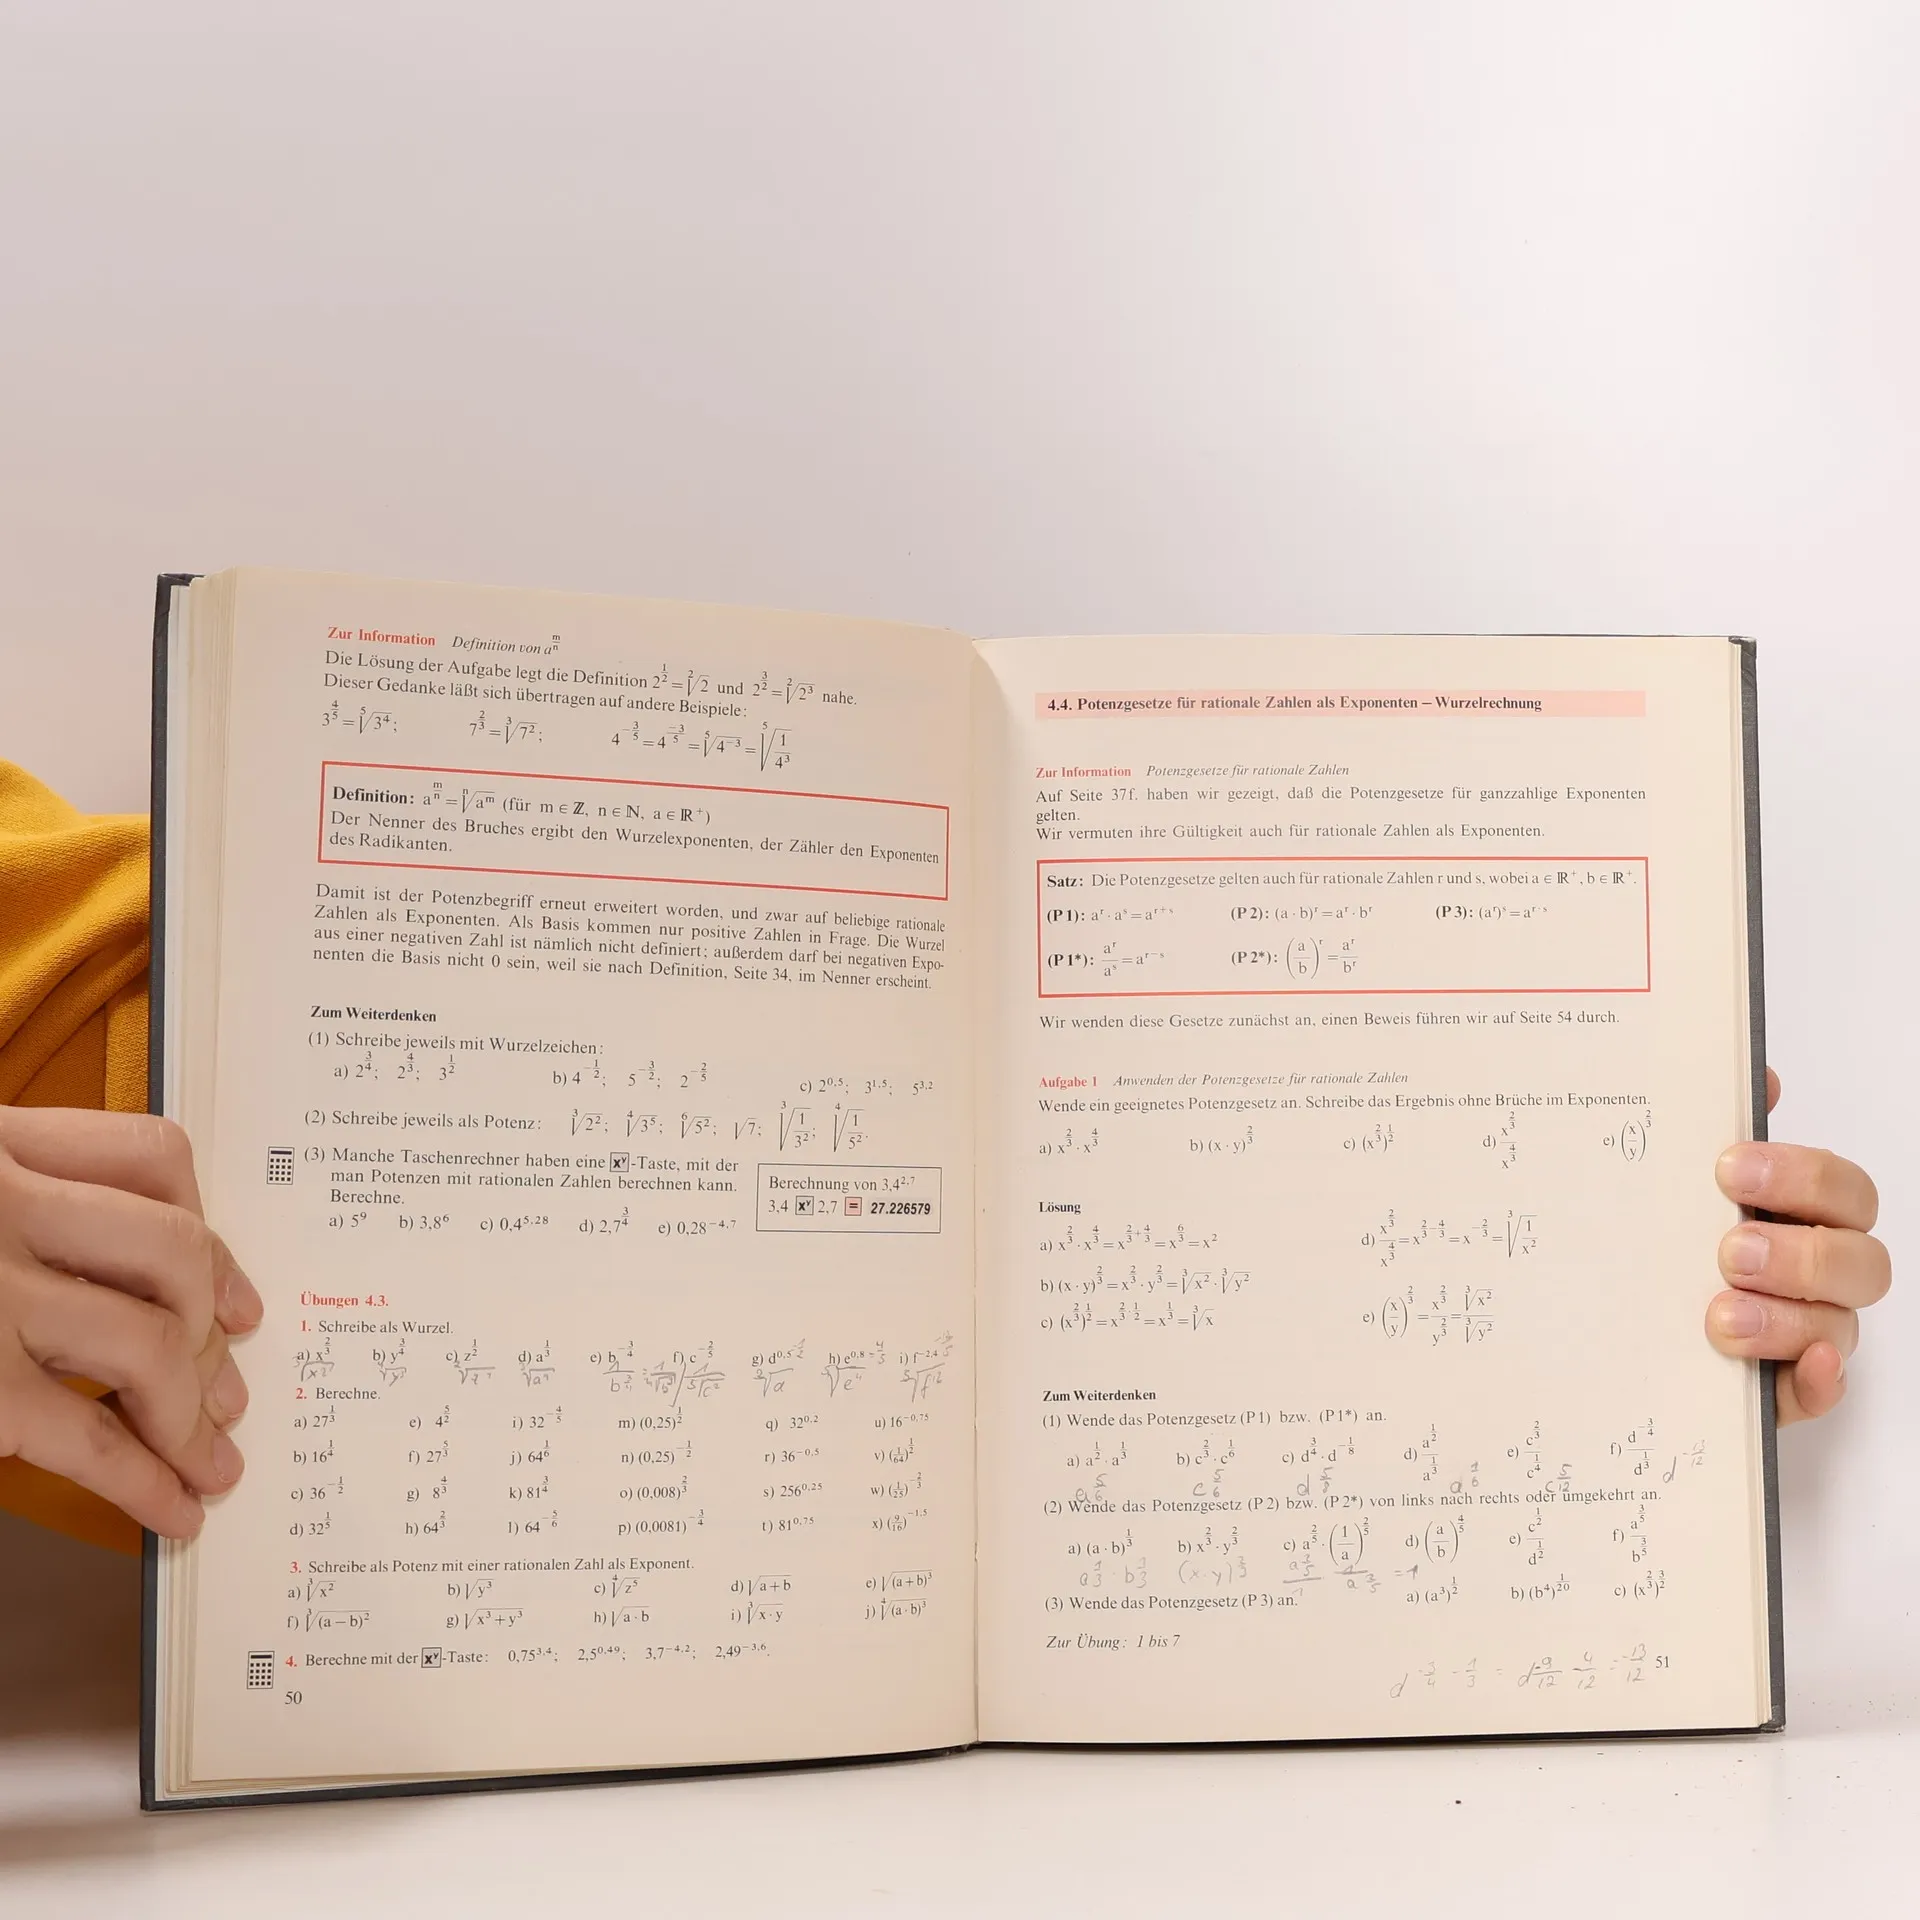 Zur Information Definition von a^(m/n)
Die Lösung der Aufgabe legt die Definition 2^(1/2) = ²√2 und 2^(3/2) = ²√2³ nahe.
Dieser Gedanke läßt sich übertragen auf andere Beispiele:
3^(4/5) = ⁵√3⁴; 7^(2/3) = ³√7²; 4^(-3/5) = 4^(-3/5) = ⁵√4⁻³ = ⁵√(1/4³)
Definition: a^(m/n) = ⁿ√a^m (für m ∈ ℤ, n ∈ ℕ, a ∈ ℝ⁺)
Der Nenner des Bruches ergibt den Wurzelexponenten, der Zähler den Exponenten
des Radikanten.
Damit ist der Potenzbegriff erneut erweitert worden, und zwar auf beliebige rationale
Zahlen als Exponenten. Als Basis kommen nur positive Zahlen in Frage. Die Wurzel
aus einer negativen Zahl ist nämlich nicht definiert; außerdem darf bei negativen Expo-
nenten die Basis nicht 0 sein, weil sie nach Definition, Seite 34, im Nenner erscheint.
Zum Weiterdenken
(1) Schreibe jeweils mit Wurzelzeichen:
a) 2^(3/4); 2^(4/3); 3^(1/2) b) 4^(-1/2); 5^(-3/2); 2^(-2/5) c) 2^0,5; 3^1,5; 5^3,2
(2) Schreibe jeweils als Potenz: ³√2²; ⁴√3⁵; ⁶√5²; √7; ³√(1/3²); ⁴√(1/5²).
(3) Manche Taschenrechner haben eine x^y-Taste, mit der
man Potenzen mit rationalen Zahlen berechnen kann.
Berechne.
a) 5⁹ b) 3,8⁶ c) 0,4^5,28 d) 2,7^(3/4) e) 0,28^-4,7
Berechnung von 3,4^2,7
3,4 x^y 2,7 = 27.226579
Übungen 4.3.
1. Schreibe als Wurzel.
a) x^(2/3) b) y^(3/4) c) z^(1/2) d) a^(1/3) e) b^(-3/4) f) c^(-2/5) g) d^0,5 h) e^0,8 i) f^-2,4
2. Berechne.
a) 27^(1/3) e) 4^(5/2) i) 32^(-4/5) m) (0,25)^(1/2) q) 32^0,2 u) 16^-0,75
b) 16^(1/4) f) 27^(5/3) j) 64^(1/6) n) (0,25)^(-1/2) r) 36^-0,5 v) (1/64)^(1/2)
c) 36^(-1/2) g) 8^(4/3) k) 81^(3/4) o) (0,008)^(2/3) s) 256^0,25 w) (1/25)^(-2/3)
d) 32^(1/5) h) 64^(2/3) l) 64^(-5/6) p) (0,0081)^(-3/4) t) 81^0,75 x) (9/16)^-1,5
3. Schreibe als Potenz mit einer rationalen Zahl als Exponent.
a) ³√x² b) √y³ c) ⁴√z⁵ d) √(a+b) e) √(a+b)³
f) ³√(a−b)² g) √(x³+y³) h) √(a·b) i) ³√(x·y) j) ⁴√(a·b)³
4. Berechne mit der x^y-Taste: 0,75^3,4; 2,5^0,49; 3,7^-4,2; 2,49^-3,6.
50
4.4. Potenzgesetze für rationale Zahlen als Exponenten – Wurzelrechnung
Zur Information Potenzgesetze für rationale Zahlen
Auf Seite 37f. haben wir gezeigt, daß die Potenzgesetze für ganzzahlige Exponenten
gelten.
Wir vermuten ihre Gültigkeit auch für rationale Zahlen als Exponenten.
Satz: Die Potenzgesetze gelten auch für rationale Zahlen r und s, wobei a ∈ ℝ⁺, b ∈ ℝ⁺.
(P1): a^r · a^s = a^(r+s) (P2): (a·b)^r = a^r · b^r (P3): (a^r)^s = a^(r·s)
(P1*): a^r/a^s = a^(r−s) (P2*): (a/b)^r = a^r/b^r
Wir wenden diese Gesetze zunächst an, einen Beweis führen wir auf Seite 54 durch.
Aufgabe 1 Anwenden der Potenzgesetze für rationale Zahlen
Wende ein geeignetes Potenzgesetz an. Schreibe das Ergebnis ohne Brüche im Exponenten.
a) x^(2/3) · x^(4/3) b) (x·y)^(2/3) c) (x^(2/3))^(1/2) d) x^(2/3)/x^(4/3) e) (x/y)^(2/3)
Lösung
a) x^(2/3) · x^(4/3) = x^(2/3+4/3) = x^(6/3) = x² d) x^(2/3)/x^(4/3) = x^(2/3−4/3) = x^(-2/3) = ³√(1/x²)
b) (x·y)^(2/3) = x^(2/3) · y^(2/3) = ³√x² · ³√y²
c) (x^(2/3))^(1/2) = x^(2/3·1/2) = x^(1/3) = ³√x e) (x/y)^(2/3) = x^(2/3)/y^(2/3) = ³√x²/³√y²
Zum Weiterdenken
(1) Wende das Potenzgesetz (P1) bzw. (P1*) an.
a) a^(1/2) · a^(1/3) b) c^(2/3) · c^(1/6) c) d^(3/4) · d^(-1/8) d) a^(1/2)/a^(1/3) e) c^(2/3)/c^(1/4) f) d^(-3/4)/d^(1/3) d^(-13/12)
a^(5/6) c^(5/6) d^(5/8) a^(1/6) c^(5/12)
(2) Wende das Potenzgesetz (P2) bzw. (P2*) von links nach rechts oder umgekehrt an.
a) (a·b)^(1/3) b) x^(2/3) · y^(2/3) c) a^(2/5) · (1/a)^(2/5) d) (a/b)^(4/5) e) c^(1/2)/d^(1/2) f) a^(3/5)/b^(3/5)
a^(1/3) · b^(1/3) (x·y)^(2/3)
(3) Wende das Potenzgesetz (P3) an. a) (a³)^(1/2) b) (b⁴)^(1/20) c) (x^(2/3))^(3/2)
Zur Übung: 1 bis 7
d^(-3/4 − 1/3) = d^(-9/12 − 4/12) = -13/12
51